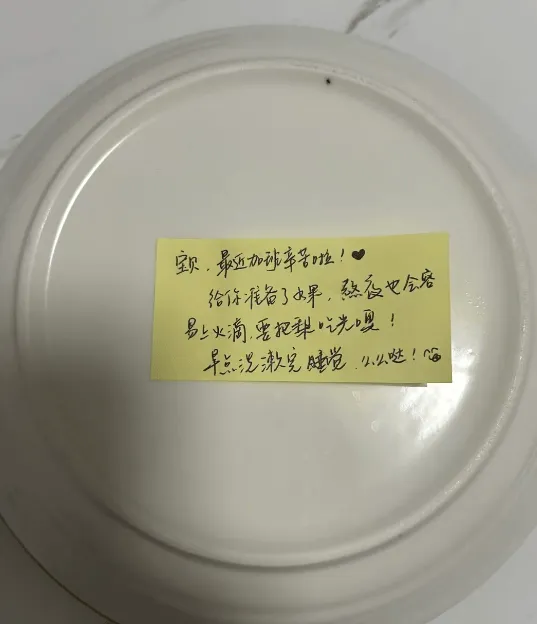 宝贝，最近加班辛苦啦！❤
给你准备了水果，熬夜也会容
易上火滴，要把梨吃光嘎！
早点洗漱完睡觉，么么哒！